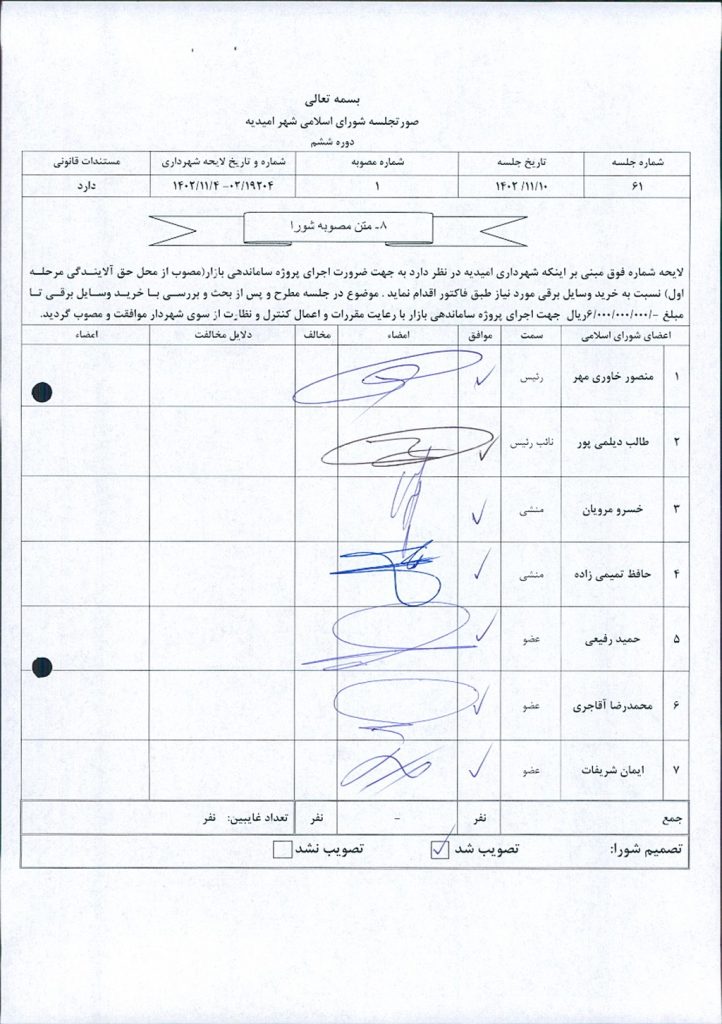 بسمه تعالی
صورتجلسه شورای اسلامی شهر امیدیه
دوره ششم
شماره جلسه تاریخ جلسه شماره مصوبه شماره و تاریخ لایحه شهرداری مستندات قانونی
۶۱ ۱۴۰۲/۱۱/۱۰ ۱ ۰۲/۱۹۲۰۴- ۱۴۰۲/۱۱/۴ دارد
۸- متن مصوبه شورا
لایحه شماره فوق مبنی بر اینکه شهرداری امیدیه در نظر دارد به جهت ضرورت اجرای پروژه ساماندهی بازار(مصوب از محل حق آلایندگی مرحله
اول) نسبت به خرید وسایل برقی مورد نیاز طبق فاکتور اقدام نماید . موضوع در جلسه مطرح و پس از بحث و بررسی با خرید وسایل برقی تا
مبلغ -/۶/۰۰۰/۰۰۰/۰۰۰ریال جهت اجرای پروژه ساماندهی بازار با رعایت مقررات و اعمال کنترل و نظارت از سوی شهردار موافقت و مصوب گردید.
اعضای شورای اسلامی سمت موافق امضاء مخالف دلایل مخالفت امضاء
۱ منصور خاوری مهر رئیس
۲ طالب دیلمی پور نائب رئیس
۳ خسرو مرویان منشی
۴ حافظ تمیمی زاده منشی
۵ حمید رفیعی عضو
۶ محمدرضا آقاجری عضو
۷ ایمان شریفات عضو
جمع نفر - نفر تعداد غایبین: نفر
تصمیم شورا: تصویب شد تصویب نشد